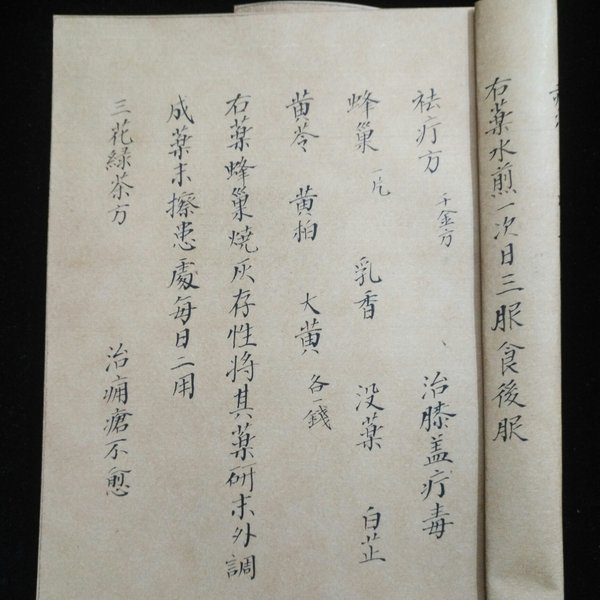 右藥水煎一次日三服食後服
祛疔方 千金方 、治膝盖疔毒
蜂巢 一片 乳香 没藥 白芷
黄芩 黄柏 大黄 各一錢
右藥蜂巢燒灰存性將其藥研末外調
成藥末擦患處每日二用
三花綠茶方 治痈瘡不愈